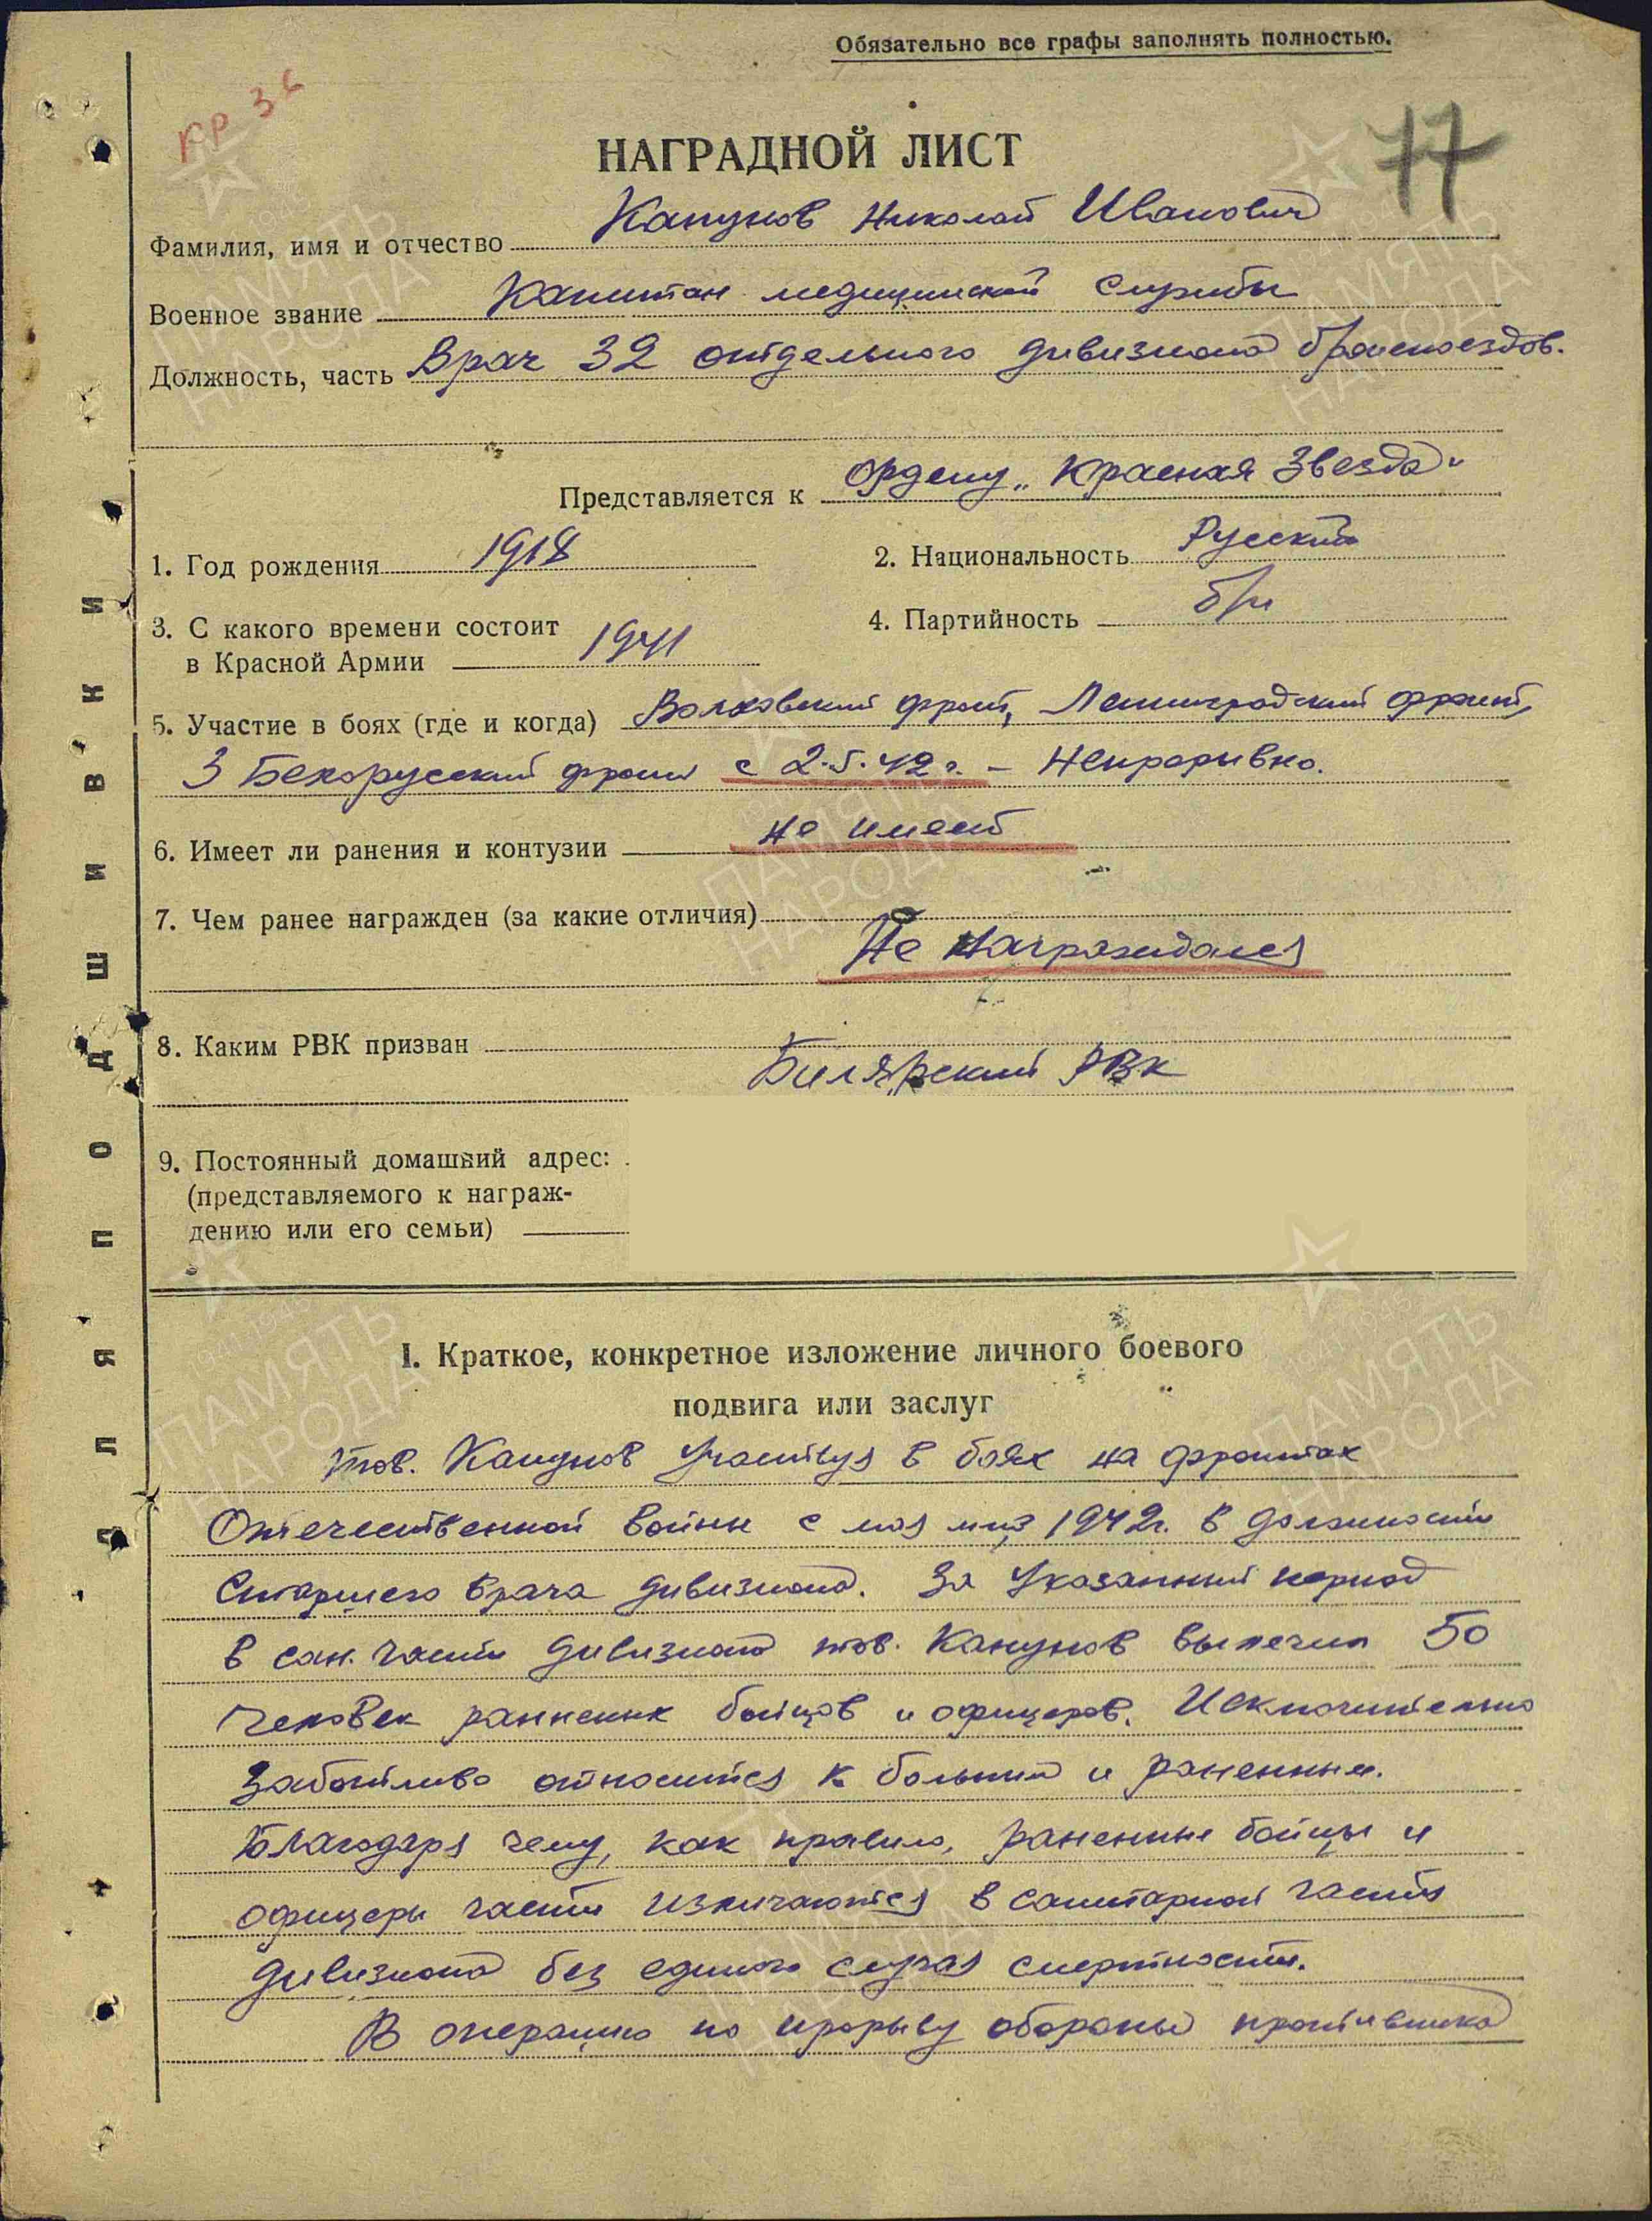 Обязательно все графы заполнять полностью.
КР 3 с
77
НАГРАДНОЙ ЛИСТ
Фамилия, имя и отчество Канунов Николай Иванович
Военное звание Капитан медицинской службы
Должность, часть Врач 32 отдельного дивизиона бронепоездов.
Представляется к Ордену „Красная Звезда"
1. Год рождения 1918
2. Национальность Русский
3. С какого времени состоит
в Красной Армии 1941
4. Партийность б/п
5. Участие в боях (где и когда) Волховский фронт, Ленинградский фронт,
3 Белорусский фронт с 2.5.42 г. – Непрерывно.
6. Имеет ли ранения и контузии не имеет
7. Чем ранее награжден (за какие отличия)
Не награждался
8. Каким РВК призван
Билярский РВК
9. Постоянный домашний адрес:
(представляемого к награж-
дению или его семьи)
I. Краткое, конкретное изложение личного боевого
подвига или заслуг
тов. Канунов участвуя в боях на фронтах
Отечественной войны с мая м-ца 1942г. в должности
Старшего врача дивизиона. За указанный период
в сан. части дивизиона тов. Канунов вылечил 50
человек ранненых бойцов и офицеров. Исключительно
заботливо относится к больным и раненным.
Благодаря чему, как правило, раненные бойцы и
офицеры части излечаются в санитарной части
дивизиона без единого случая смертности.
В операцию по прорыву обороны противника
Для подшивки
ПАМЯТЬ
НАРОДА